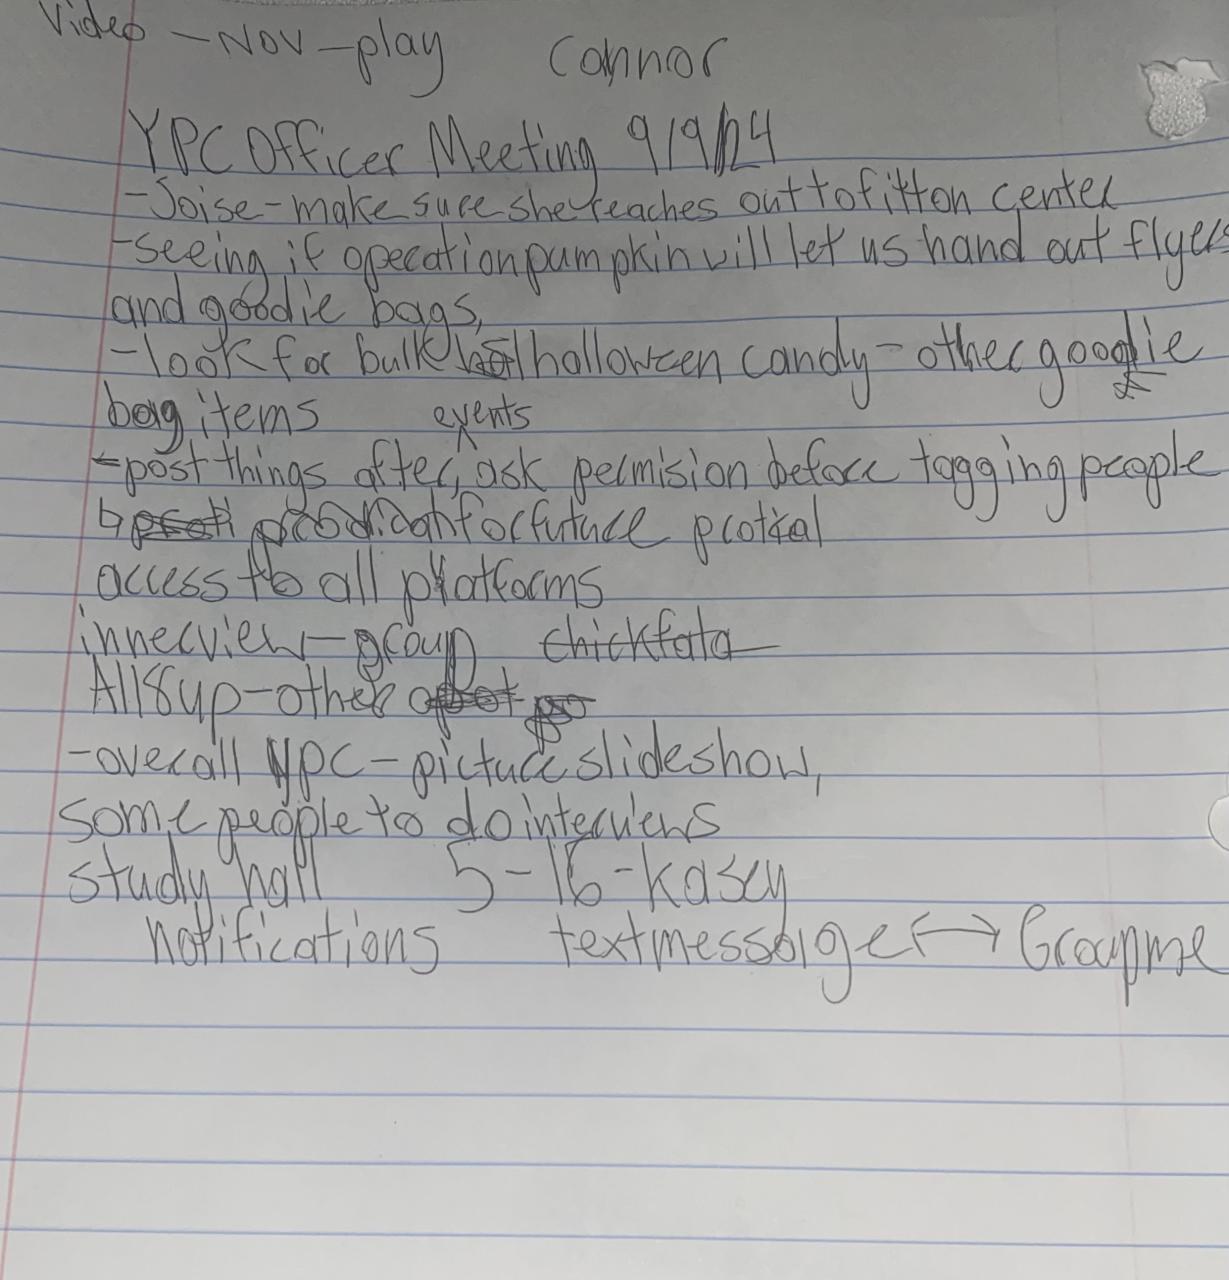 Video - Nov - play Connor
YPC Officer Meeting 9/9/24
- Joise - make sure she reaches out to fitton center
- seeing if operation pumpkin will let us hand out flyers
and goodie bags,
- look for bulk halloween candy - other goodie
bag items events
- post things after, ask permision before tagging people
for future
access to all platforms
innerview - group chickfata
All 18 up - other
- overall ypc - picture slideshow,
some people to do interviews
study hall 5-16 - kasey
notifications textmessage ↔ Groupme